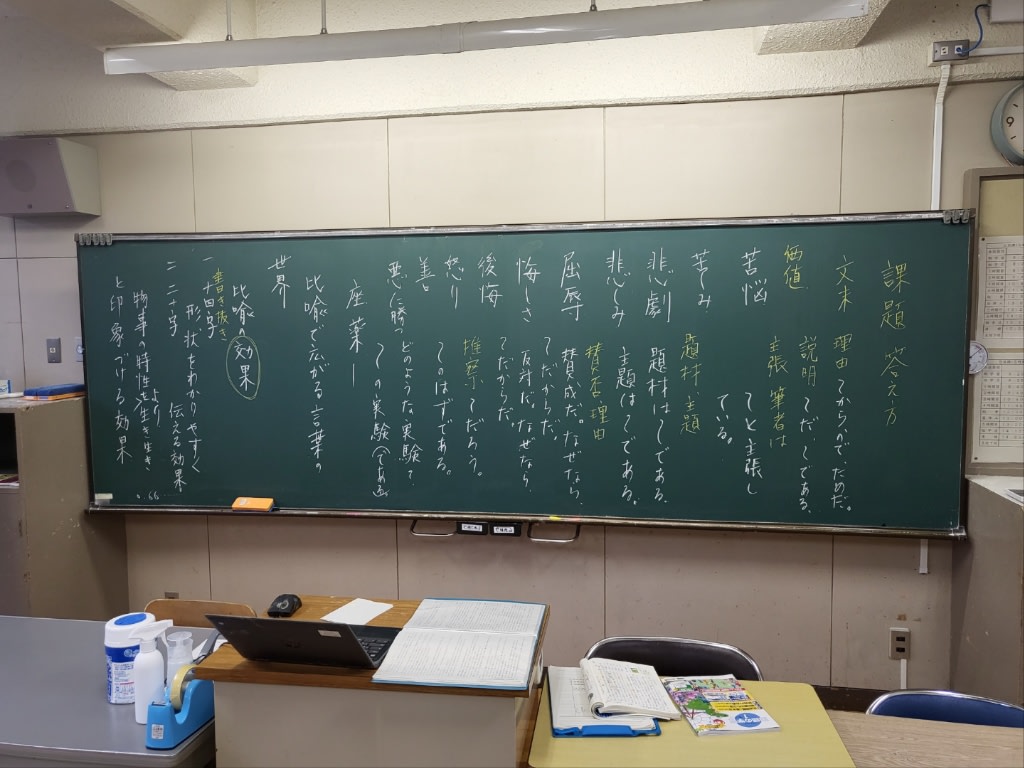 課題 答え方
文末 理由 〜から、〜ので、ためだ。
説明 〜だ。〜である。
価値 主張 筆者は
〜と主張し
苦悩
ている。
苦しみ
題材・主題
悲劇 題材は〜である。
悲しみ 主題は〜である。
賛否・理由
屈辱 賛成だ。なぜなら、
〜だからだ。
悔しさ 反対だ。なぜなら、
後悔 〜だからだ。
推察 〜だろう。
怒り
〜のはずである。
善と
悪に勝つ どのような実験?
〜の実験
座薬ー
比喩で広がる言葉の
世界
比喩の効果
書き抜き
一 十四字
形状をわかりやすく
伝える効果
二 二十字
物事の特性をより生き生き
と印象づける効果